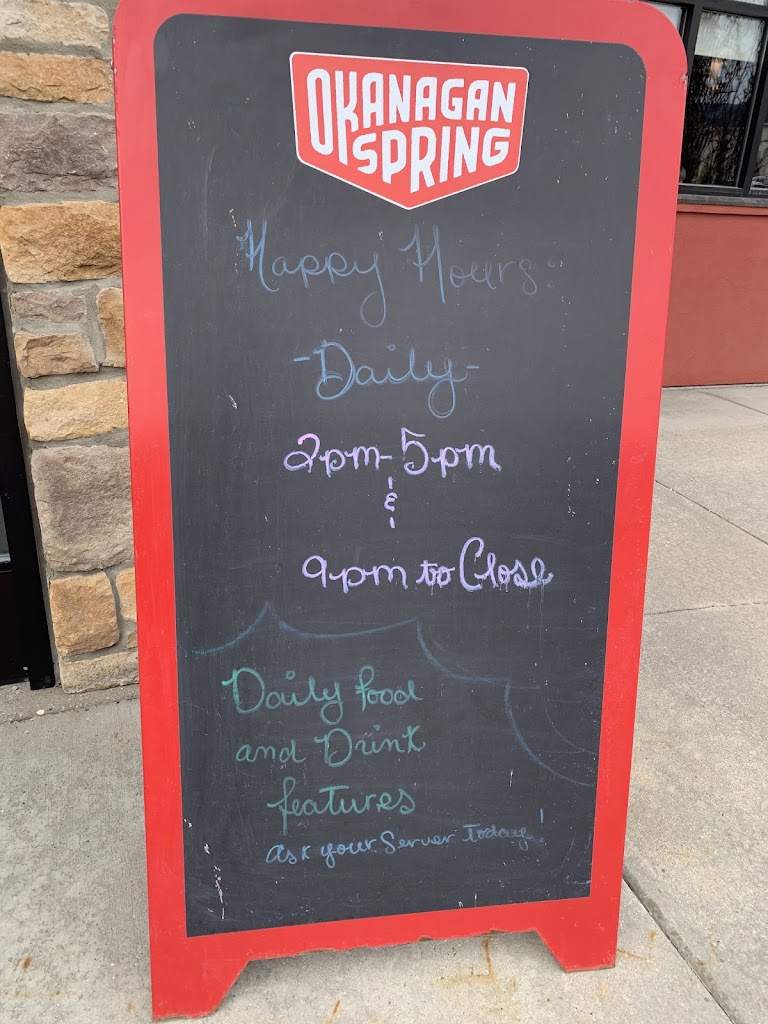 OKANAGAN
SPRING
Happy Hours:
-Daily-
2pm-5pm
&
9pm to Close
Daily food
and Drink
features
Ask your Server Today!